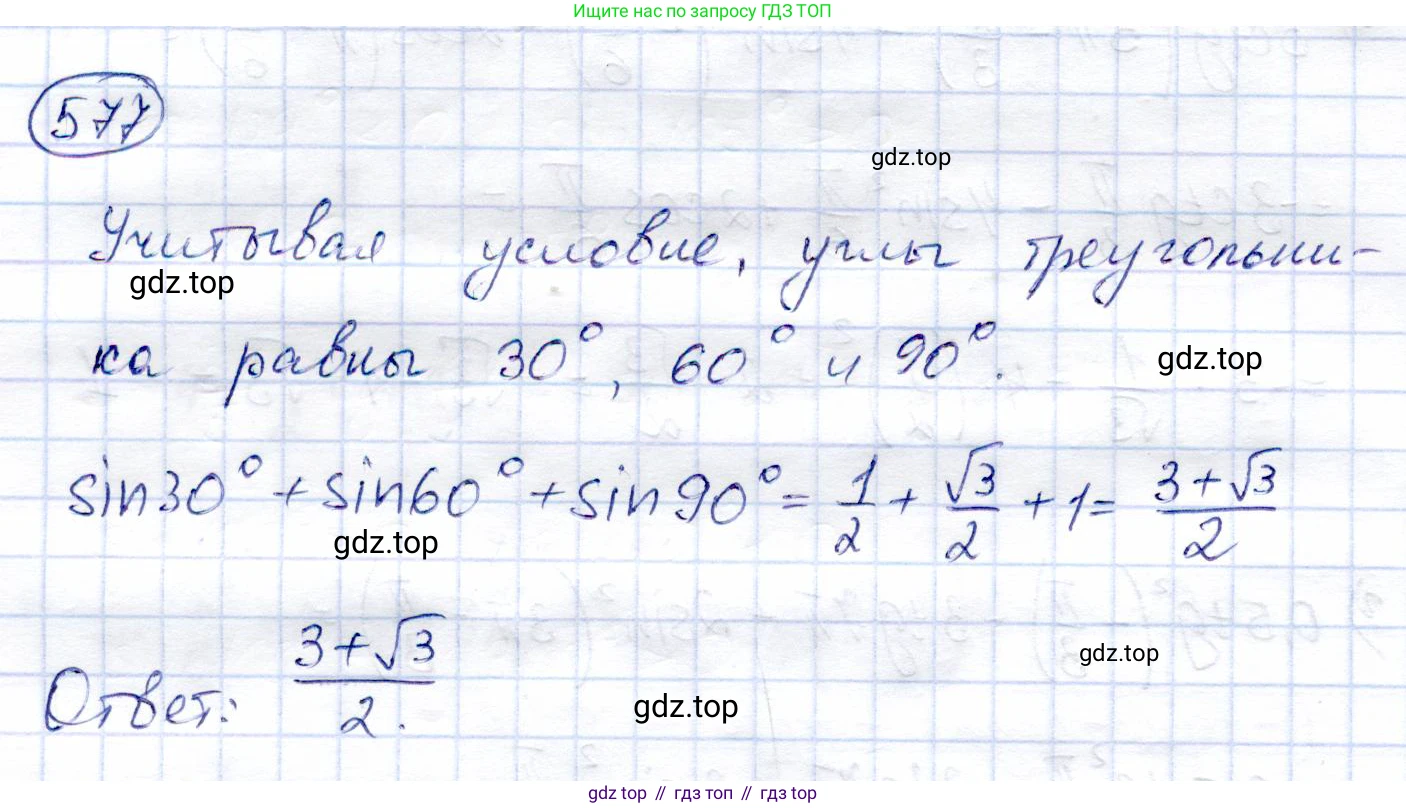 Ищите нас по запросу ГДЗ ТОП
577
gdz.top
Учитывая условие, углы треугольни-
gdz.top
ка равны 30°, 60° и 90°.
gdz.top
sin30° + sin60° + sin90° = 1/2 + √3/2 + 1 = (3+√3)/2
gdz.top
gdz.top
Ответ: (3+√3)/2.
gdz.top
gdz top // гдз топ // гдз top